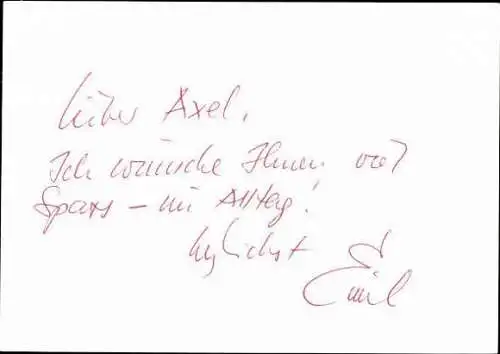 Lieber Axel,
Ich wünsche Ihnen viel
Spass – im Alltag!
herzlichst Emil